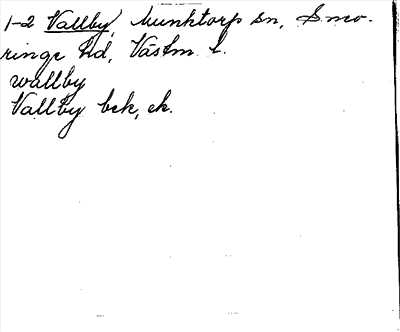 1-2 Vallby, Munktorp sn, Snev-
ringe hd, Västm. l.
wallby
Vallby bck, ek.